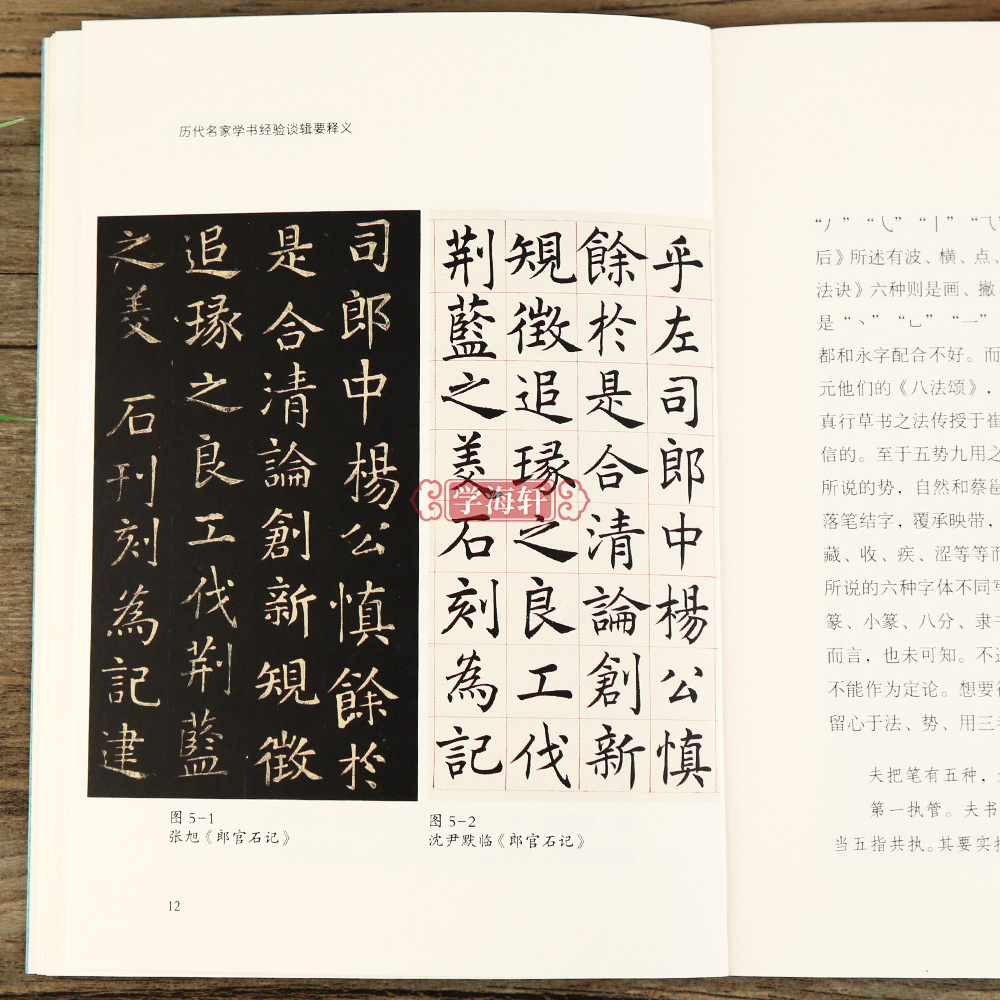 历代名家学书经验谈辑要释义
司郎中楊公慎餘於
是合清論創新規徵
追琢之良工伐荆藍
之美 石刊刻為記建
乎左司郎中楊公慎
餘於是合清論創新
規徵追琢之良工伐
荆藍之美石刻為記
学海轩
图 5-1
张旭《郎官石记》
图 5-2
沈尹默临《郎官石记》
12
后》所述有波、横、点、
法诀》六种则是画、撇
是“丶”“乚”“一”
都和永字配合不好。而
元他们的《八法颂》,
真行草书之法传授于崔
信的。至于五势九用之
所说的势，自然和蔡邕
落笔结字，覆承映带，
藏、收、疾、涩等等而
所说的六种字体不同写
篆、小篆、八分、隶书
而言，也未可知。不过
不能作为定论。想要很
留心于法、势、用三者
夫把笔有五种，
第一执管。夫书
当五指共执。其要实指